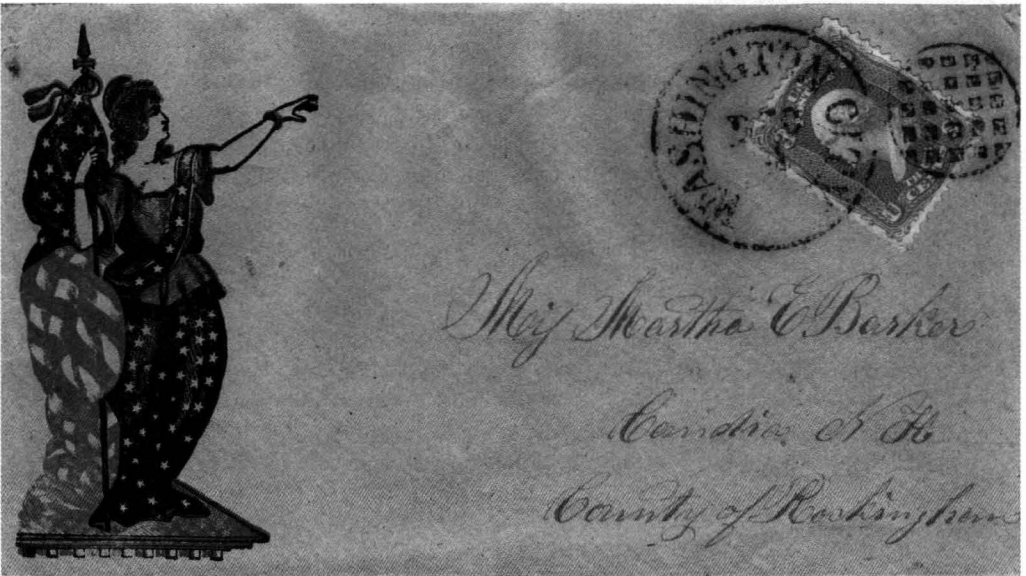 WASHINGTON
Miss Martha E Barker
Candia N H
County of Rockingham